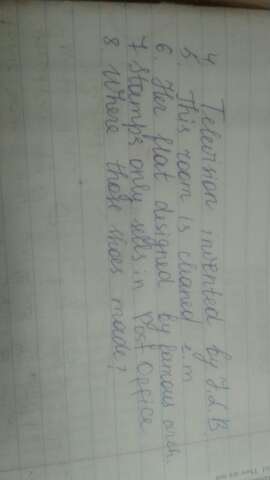 4. Television invented by J.L.B.
5. This room is cleaned e.m
6. Her flat designed by famous arch.
7 Stamps only sells in Post Office
8 Where those shoes made?